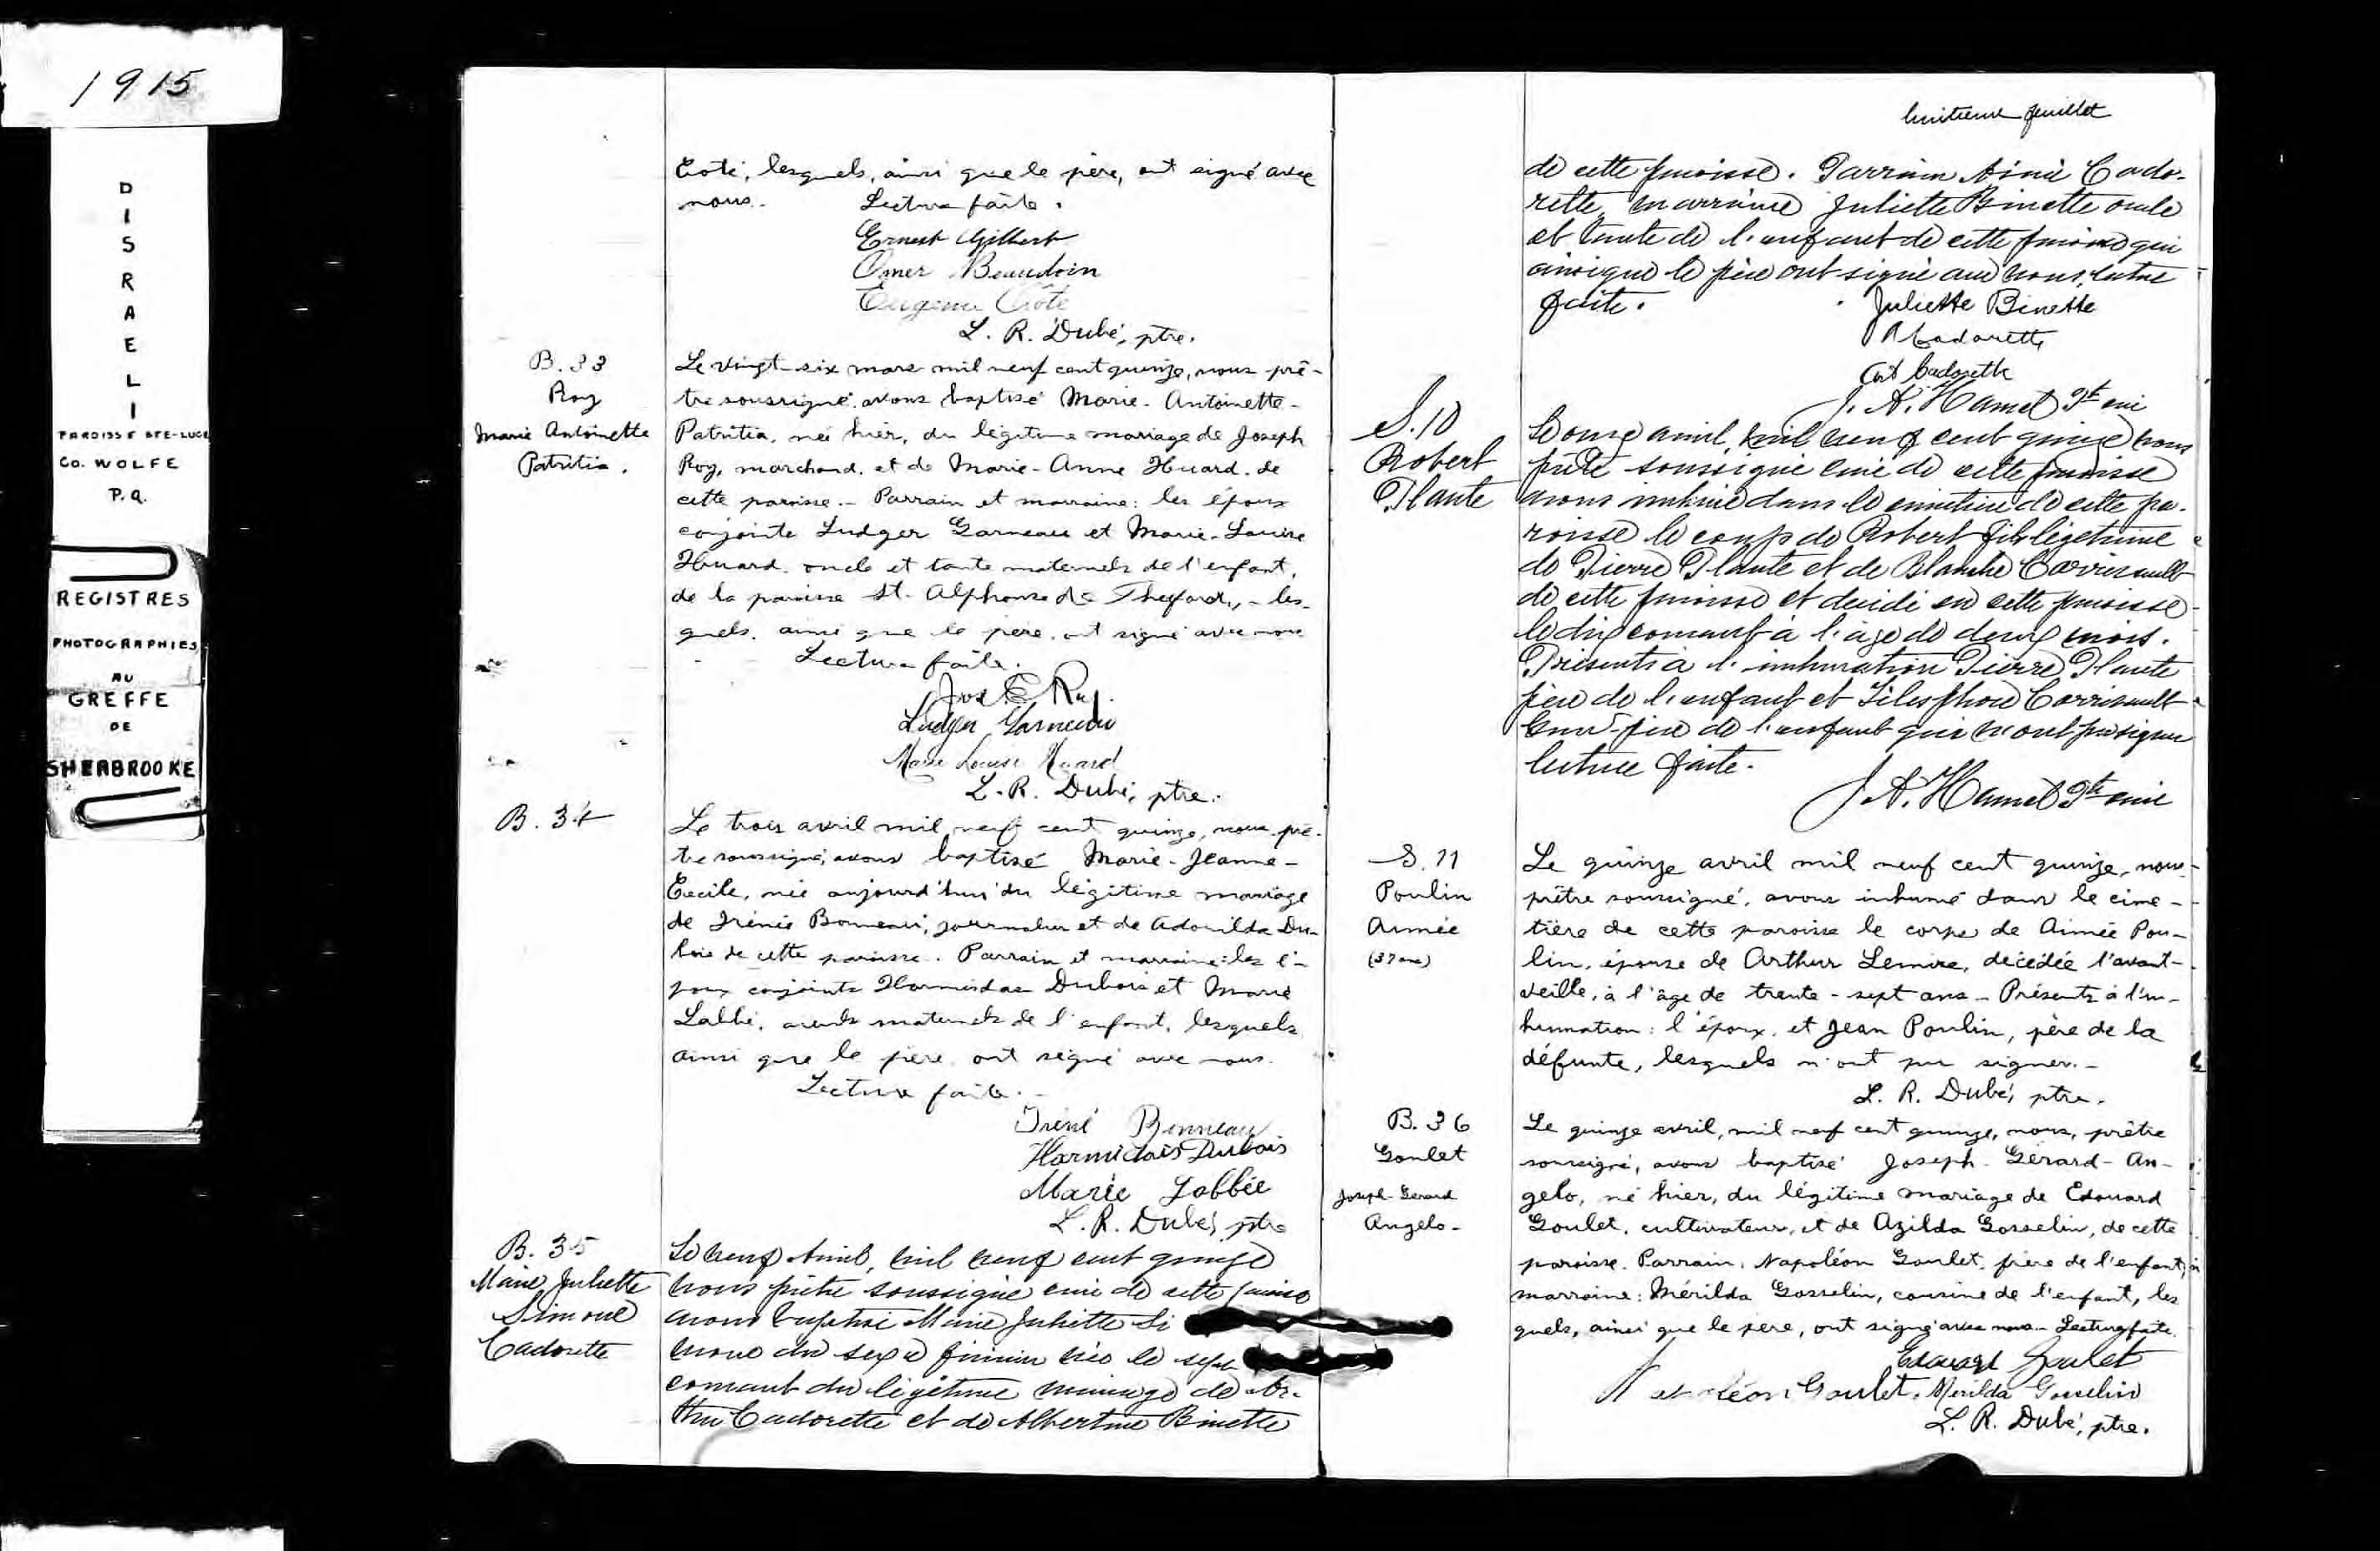 1915
DISRAELI
PAROISSE STE-LUCE
CO. WOLFE
P.Q.
REGISTRES
PHOTOGRAPHIES
AU
GREFFE
DE
SHERBROOKE
Coté, lesquels, ainsi que le père, ont signé avec
nous. Lecture faite.
Ernest Gilbert
Omer Beaudoin
Eugenie Côté
L. R. Dubé, ptre.
B. 33
Roy
Marie Antoinette
Patritia.
Le vingt-six mars mil neuf cent quinze, nous prê-
tre soussigné, avons baptisé Marie-Antoinette-
Patritia, née hier, du légitime mariage de Joseph
Roy, marchand, et de Marie-Anne Huard, de
cette paroisse. - Parrain et marraine: les époux
conjoints Ludger Garneau et Marie-Louise
Huard, oncle et tante maternels de l'enfant,
de la paroisse St. Alphonse de Thetford, - les-
quels, ainsi que le père, ont signé avec nous
Lecture faite.
Jos. E. Roy.
Ludger Garneau
Marie Louise Huard
L. R. Dubé, ptre.
B. 34
Le trois avril mil neuf cent quinze, nous prê-
tre soussigné, avons baptisé Marie-Jeanne-
Cecile, née aujourd'hui du légitime mariage
de Irénée Bonneau, journalier et de Adouilda Du-
bois de cette paroisse. Parrain et marraine: les é-
poux conjoints Hormisdas Dubois et Marie
Labbé, aieuls maternels de l'enfant, lesquels
ainsi que le père ont signé avec nous.
Lecture faite.
Irené Bonneau
Harmidas Dubois
Marie Labbée
L. R. Dubé, ptre
B. 35
Marie Juliette
Simone
Cadorette
Le neuf Avril, mil neuf cent quinze
nous prêtre soussigné curé de cette paroisse
avons baptisé Marie Juliette Si
mone du sexe féminin née le sept
courant du légitime mariage de Ar-
thur Cadorette et de Albertine Binette
huitieme feuillet
de cette paroisse. Parrain Aimé Cado-
rette, marraine Juliette Binette oncle
et tante de l'enfant de cette paroisse qui
ainsi que le père ont signé avec nous, lecture
faite. Juliette Binette
A Cadorette
Art Cadorette
J. A. Hamel Ptre curé
S. 10
Robert
Plante
Le onze avril, mil neuf cent quinze nous
prêtre soussigné curé de cette paroisse
avons inhumé dans le cimetière de cette pa-
roisse le corps de Robert fils légetime
de Pierre Plante et de Blanche
de cette paroisse et décédé en cette paroisse
le dix courant à l'âge de deux mois.
Présents à l'inhumation Pierre Plante
père de l'enfant et Télesphore
Grand-père de l'enfant qui n'ont pu signer
lecture faite.
J. A. Hamel Ptre curé
S. 11
Poulin
Aimée
(37 ans)
Le quinze avril mil neuf cent quinze, nous
prêtre soussigné, avons inhumé dans le cime-
tière de cette paroisse le corps de Aimée Pou-
lin, épouse de Arthur Lemire, décédée l'avant-
veille, à l'âge de trente-sept ans - Présents à l'in-
humation: l'époux, et Jean Poulin, père de la
défunte, lesquels n'ont pu signer. -
L. R. Dubé, ptre.
B. 36
Goulet
Joseph Gerard
Angelo-
Le quinze avril, mil neuf cent quinze, nous, prêtre
soussigné, avons baptisé Joseph-Gérard-An-
gelo, né hier, du légitime mariage de Edouard
Goulet, cultivateur, et de Azilda Gosselin, de cette
paroisse. Parrain, Napoléon Goulet, frère de l'enfant,
marraine: Mérilda Gosselin, cousine de l'enfant, les
quels, ainsi que le père, ont signé avec nous - Lecture faite.
Edouard Goulet
Goulet. Mérilda Gosselin
L. R. Dubé, ptre.